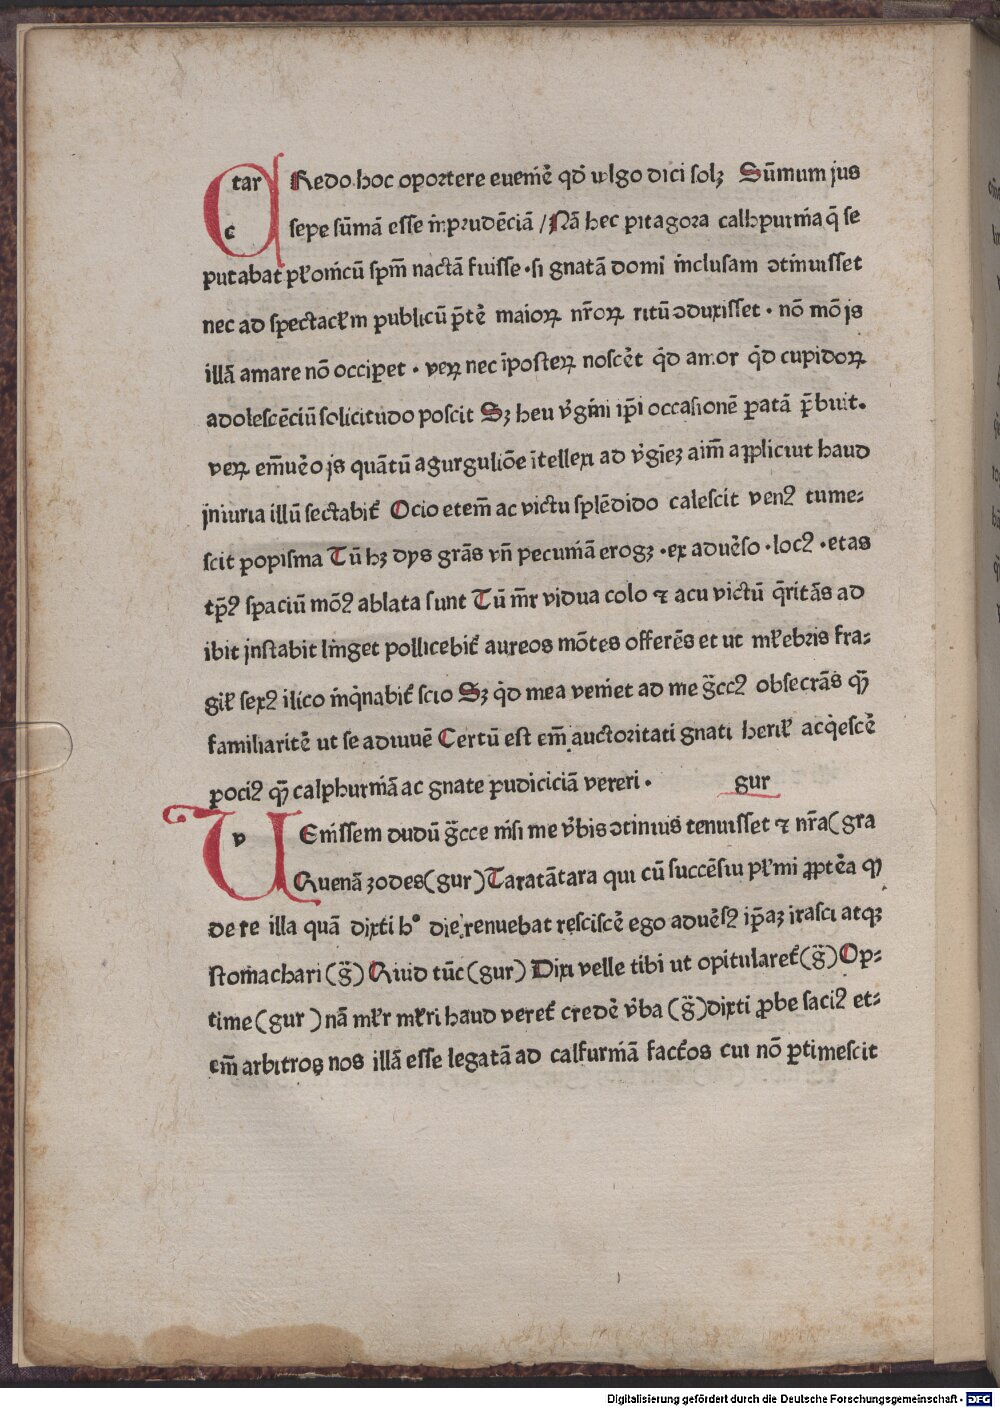 tar Redo hoc oportere euenir̄e qd̄ wlgo dici solꝫ Sūmum jus
c sepe sūmā esse īprudēciā / Nā hec pitagora calhpurnia q̄ se
putabat pl̄onicū spm̄ nactā fuisse · si gnatā domi inclusam ꝯtinuisset
nec ad spectacl̄m publicū p̄tē maioꝝ nr̄oꝝ ritū ꝯduxisset · nō mō js
illā amare nō occiꝑet · veꝝ nec īposteꝝ noscēt qͥd amor qͥd cupidoꝝ
adolescēciū solicitudo poscit Sꝫ heu v̄gini ip̄i occasionē ꝑatā p̄buit.
veꝝ em̄uēo js quātū a gurguliōe ītellexi ad v̄gīeꝫ aim̄ aꝓpliciut haud
jniuria illū sectabit᷑ Ocio etem̄ ac victu splēdido calescit venꝰ tume⸗
scit popisma Tū hꝫ dys grās vn̄ pecuniā erogꝫ · ex aduēso · locꝰ · etas
tp̄ꝰ spaciū mōꝰ ablata sunt Tū mr̄ vidua colo ⁊ acu victū q̄ritās ad
ibit jnstabit linget pollicebit᷑ aureos mōtes offerēs et ut ml̄ebris fra⸗
gil̄ sexꝰ ilico inqͥnabit᷑ scio Sꝫ qͥd mea veniet ad me g̈ccꝰ obsecrās qꝫ̄
familiaritē ut se adiuuē Certū est em̄ auctoritati gnati heril̄ acqͥescē
ꝑociꝰ qꝫ̄ calphurniā ac gnate pudiciciā vereri · gur
v Enissem dudū g̈cce nisi me v̄bis ꝯtinius tenuisset ⁊ nr̄a (gra
Quenā ꝫodes (gur) Taratātara qui cū succēsiu pl̄mi ꝓptēa qꝫ
de re illa quā dixti hº die renuebat rescisce̅ ego aduēsꝰ ip̄aꝫ irasci atqꝫ
stomachari (g̈) Quid tūc (gur) Dixi velle tibi ut opitularet᷑ (g̈) Op⸗
time (gur) nā ml̄r ml̄ri haud veret᷑ credē v̄ba (g̈) dixti ꝓbe saciꝰ et⸗
em̄ arbitros nos illā esse legatā ad calfurniā fact᷑os cui nō ꝑtimescit
Digitalisierung gefördert durch die Deutsche Forschungsgemeinschaft - DFG